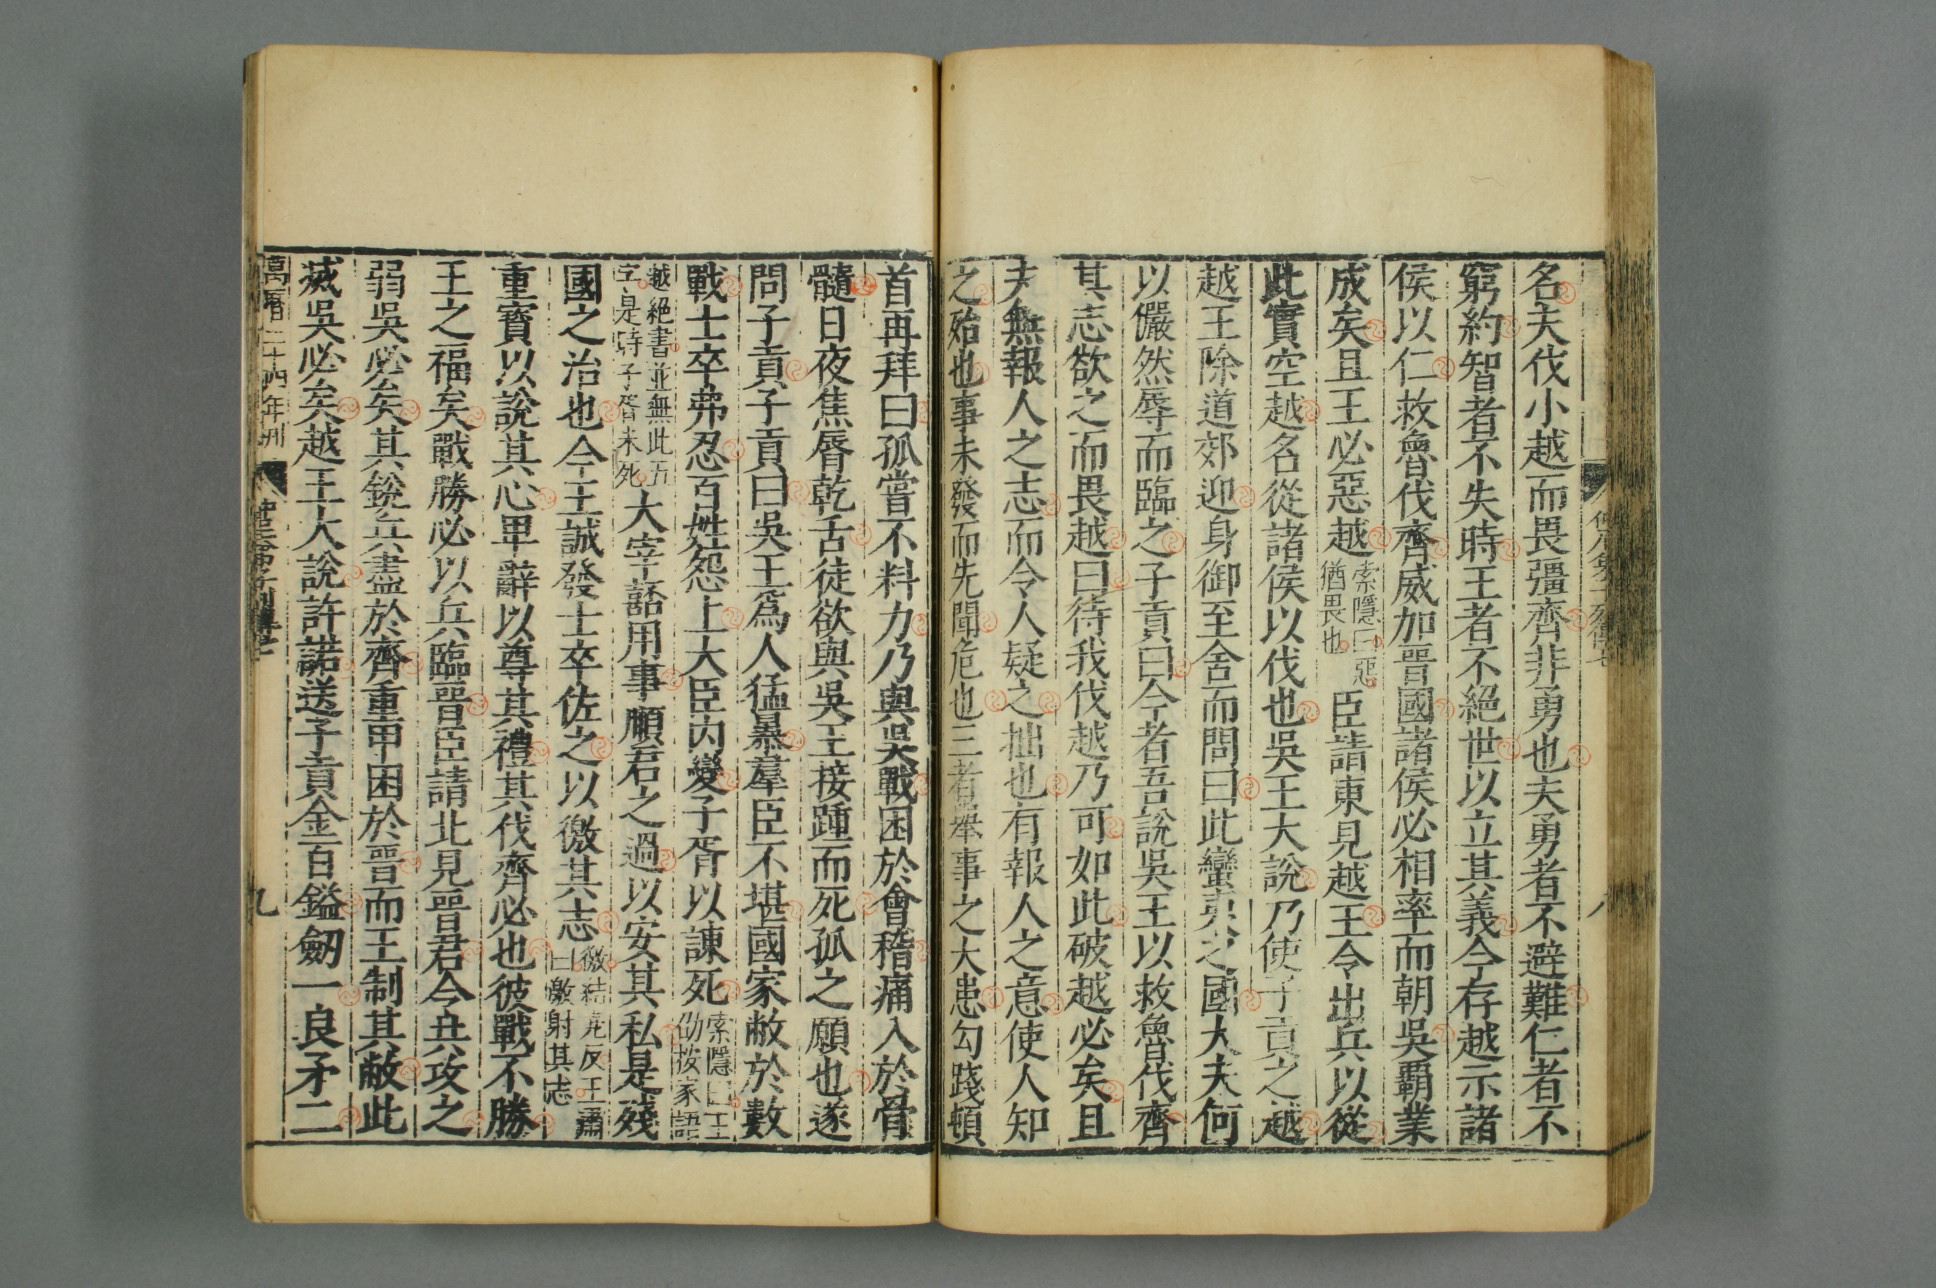 名夫伐小越而畏彊齊非勇也夫勇者不避難仁者不
窮約智者不失時王者不絕世以立其義今存越示諸
侯以仁救魯伐齊威加晉國諸侯必相率而朝吳霸業
成矣且王必惡越索隱曰惡猶畏也臣請東見越王令出兵以從
此實空越名從諸侯以伐也吳王大說乃使子貢之越
越王除道郊迎身御至舍而問曰此蠻夷之國大夫何
以儼然辱而臨之子貢曰今者吾說吳王以救魯伐齊
其志欲之而畏越曰待我伐越乃可如此破越必矣且
夫無報人之志而令人疑之拙也有報人之意使人知
之殆也事未發而先聞危也三者舉事之大患勾踐頓
首再拜曰孤嘗不料力乃與吳戰困於會稽痛入於骨
髓日夜焦脣乾舌徒欲與吳王接踵而死孤之願也遂
問子貢子貢曰吳王為人猛暴羣臣不堪國家敝於數
戰士卒弗忍百姓怨上大臣內變子胥以諫死索隱曰王劭按家語
越絕書並無此五字是時子胥未死大宰嚭用事順君之過以安其私是殘
國之治也今王誠發士卒佐之以徼其志徼結堯反王肅曰激射其志
重寶以說其心卑辭以尊其禮其伐齊必也彼戰不勝
王之福矣戰勝必以兵臨晉臣請北見晉君令共攻之
弱吳必矣其銳兵盡於齊重甲困於晉而王制其敝此
滅吳必矣越王大說許諾送子貢金百鎰劒一良矛二
萬曆二十四年刊
九
八